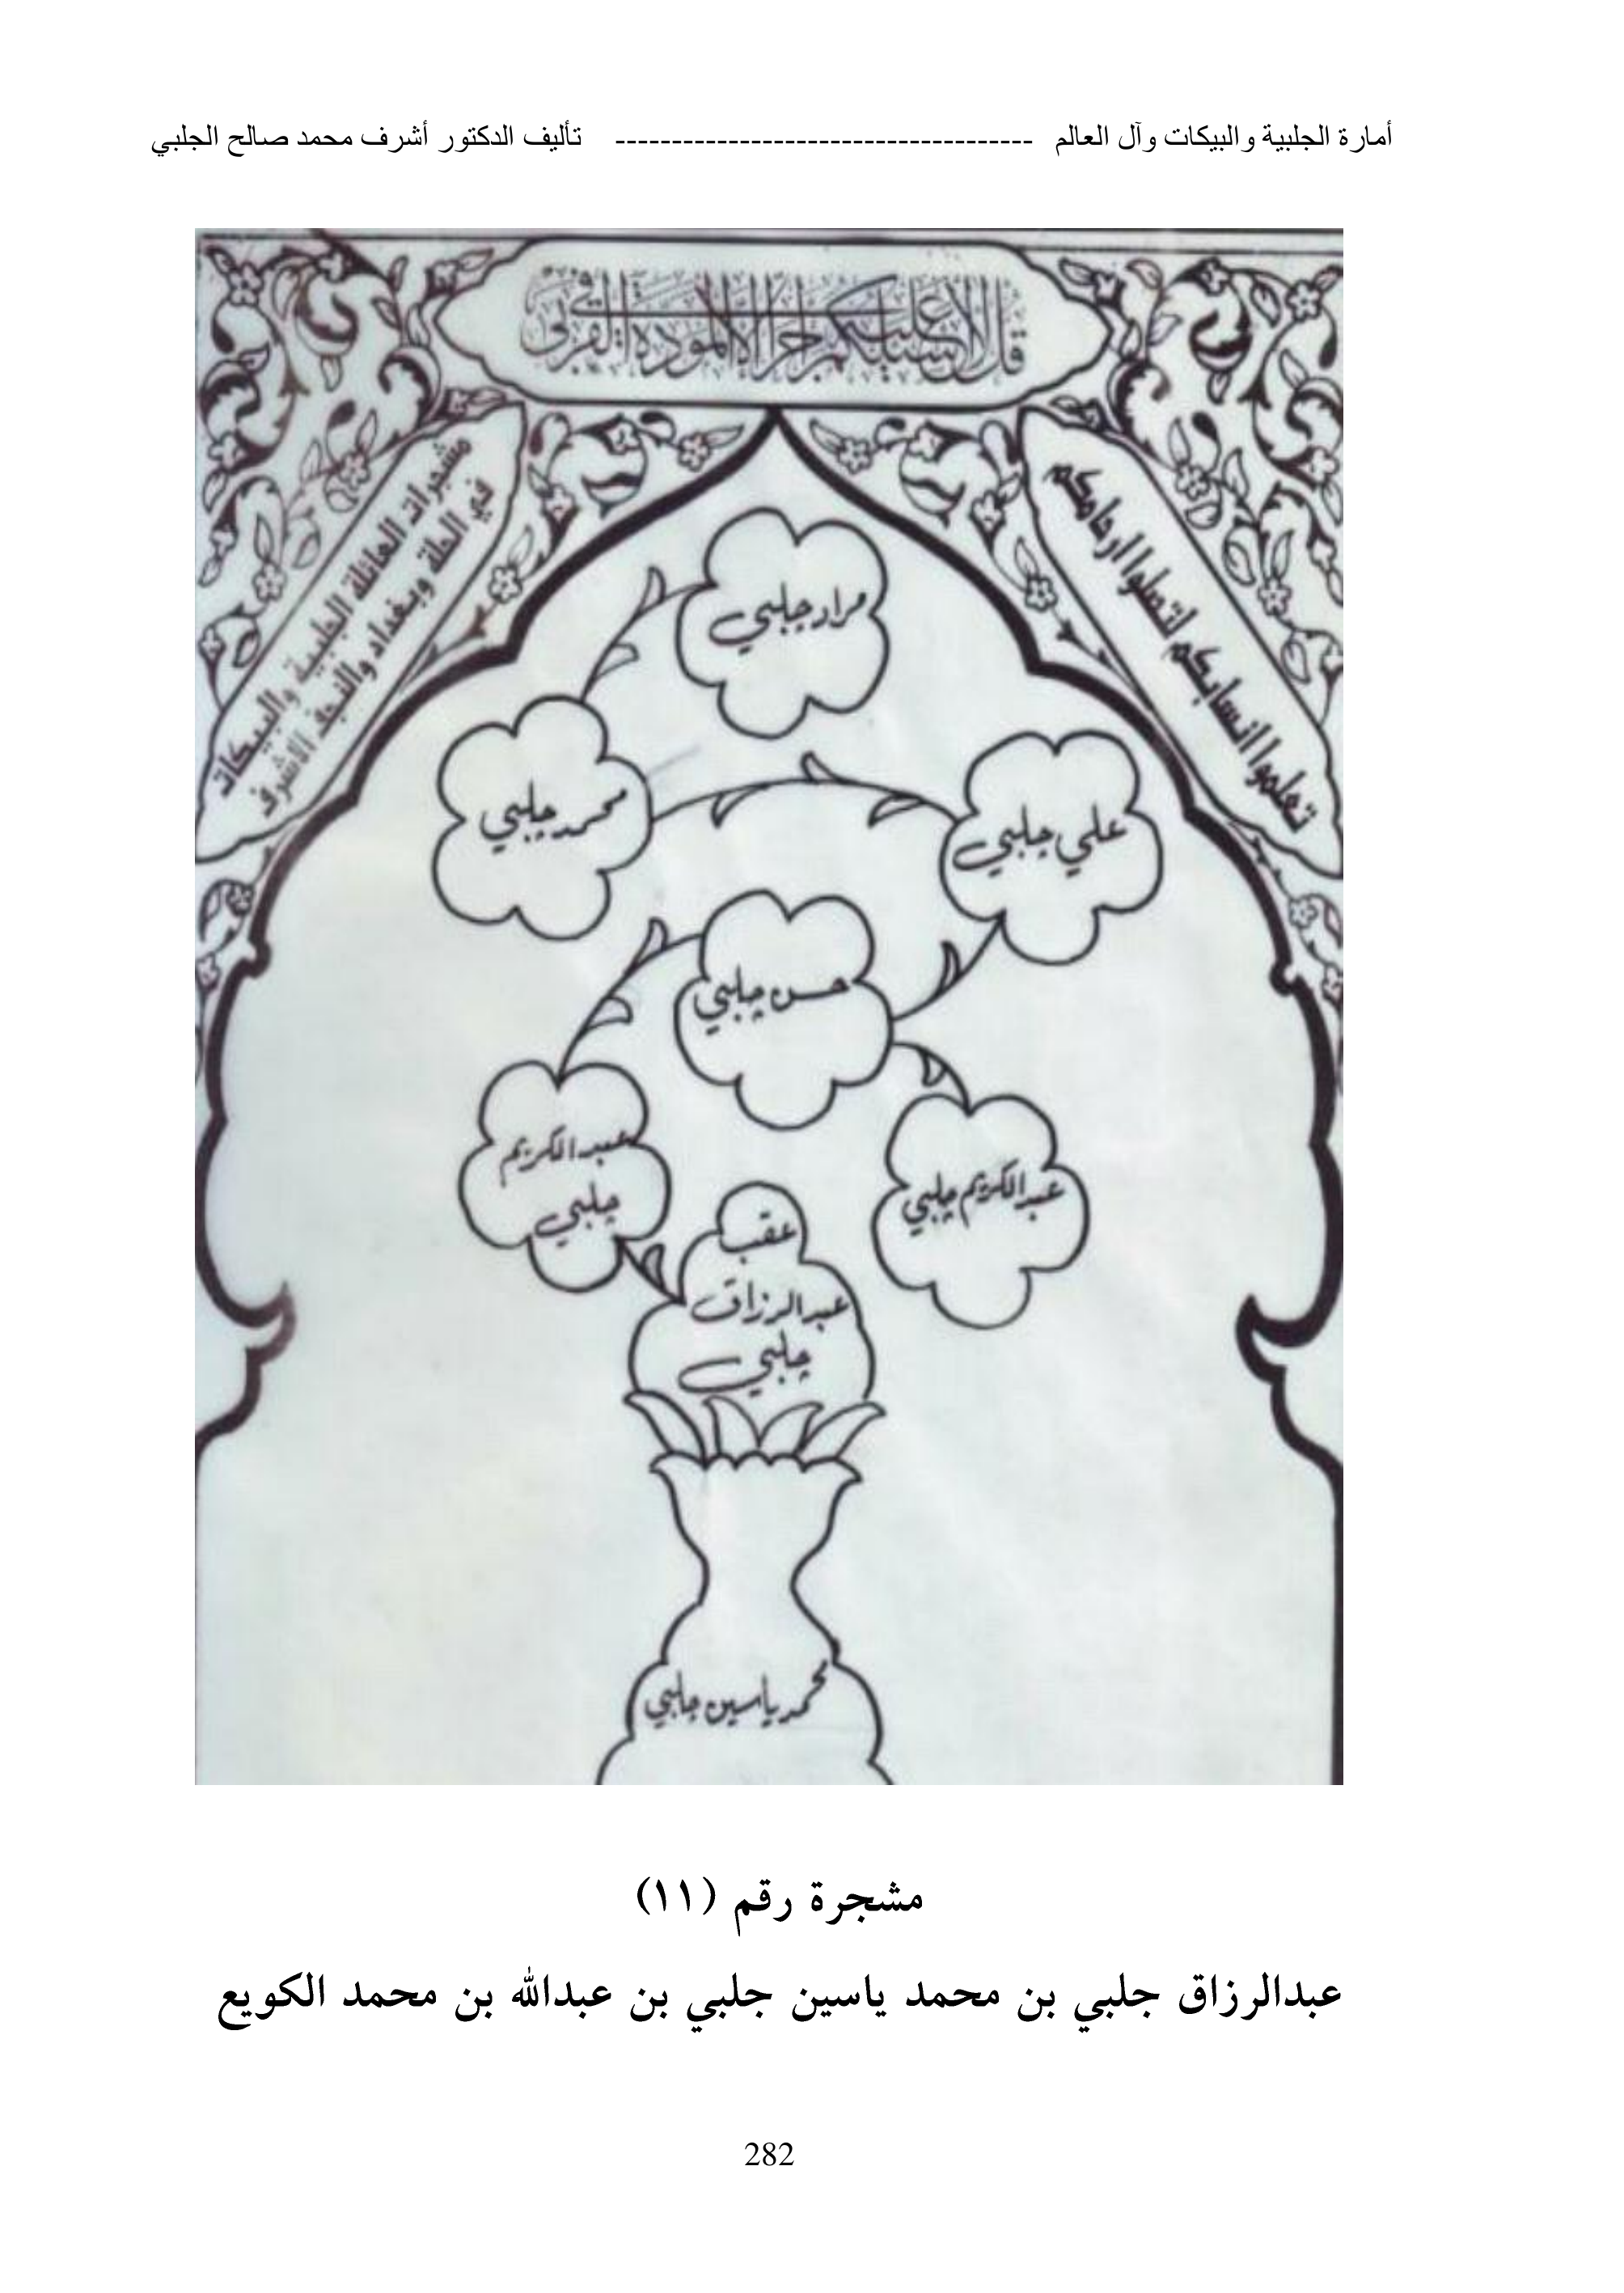 أمارة الجلبية والبيكات وآل العالم ------------------------------------- تأليف الدكتور أشرف محمد صالح الجلبي
قل لا أسئلكم عليه أجرا إلا المودة في القربى
تعلموا انسابكم لتصلوا ارحامكم
مشجرات العائلة الجلبية والبيكات
في الحلة وبغداد والنجف الاشرف
مراد چلبي
محمد چلبي
علي چلبي
حسن چلبي
عبدالكريم
چلبي
عبدالكريم چلبي
عقب
عبدالرزاق
چلبي
محمد ياسين چلبي
مشجرة رقم (١١)
عبدالرزاق جلبي بن محمد ياسين جلبي بن عبدالله بن محمد الكويع
282